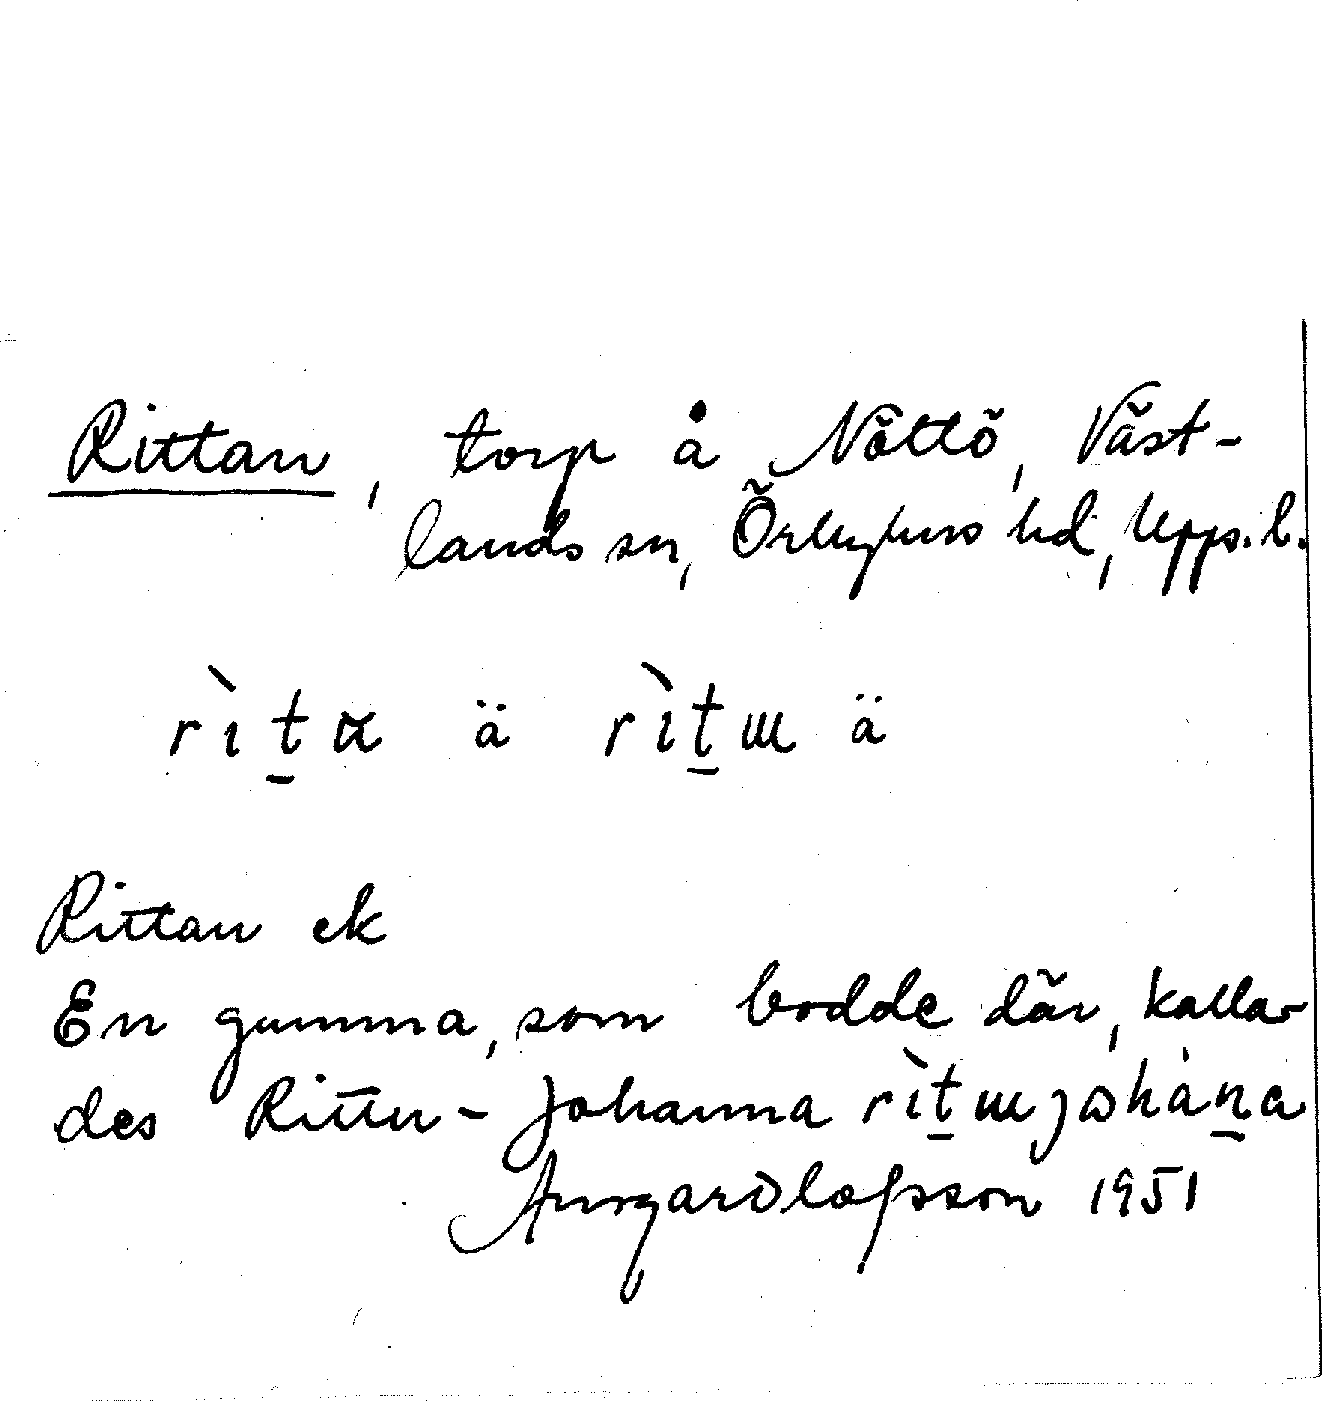 Rittan, torp å Nöttö, Väst-
lands sn, Örbyhus hd, Upps. l.
rìt̠α ä rìt̠ɯ ä
Rittan ek
En gumma, som bodde där, kalla-
des Rittu-Johanna rìt̠ɯjɷhàn̠a
Ansgar Olofsson 1951